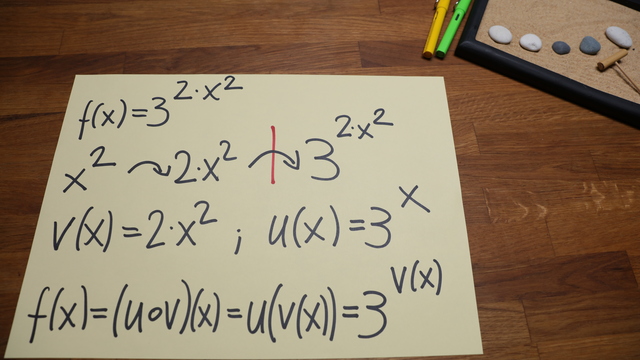 f(x)=3^{2·x^2}
x^2 ↷ 2·x^2 ↷ 3^{2·x^2}
v(x)=2·x^2 ; u(x)=3^x
f(x)=(u∘v)(x)=u(v(x))=3^{v(x)}